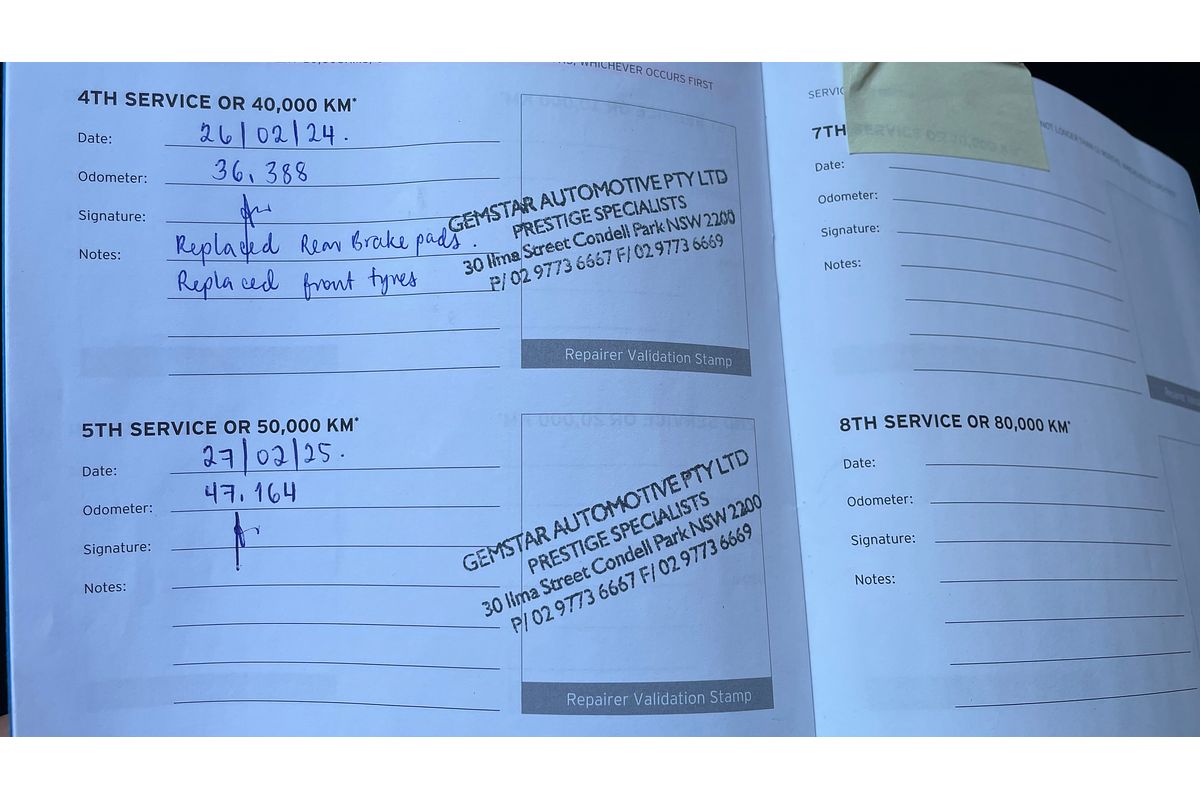 WHICHEVER OCCURS FIRST
4TH SERVICE OR 40,000 KM*
Date: 26/02/24.
Odometer: 36,388
Signature:
Notes: Replaced Rear Brake pads.
Replaced front tyres
GEMSTAR AUTOMOTIVE PTY LTD
PRESTIGE SPECIALISTS
30 Ilma Street Condell Park NSW 2200
P/ 02 9773 6667 F/ 02 9773 6669
Repairer Validation Stamp
5TH SERVICE OR 50,000 KM*
Date: 27/02/25.
Odometer: 47.164
Signature:
Notes:
GEMSTAR AUTOMOTIVE PTY LTD
PRESTIGE SPECIALISTS
30 Ilma Street Condell Park NSW 2200
P/ 02 9773 6667 F/ 02 9773 6669
Repairer Validation Stamp
7TH
Date:
Odometer:
Signature:
Notes:
8TH SERVICE OR 80,000 KM*
Date:
Odometer:
Signature:
Notes: